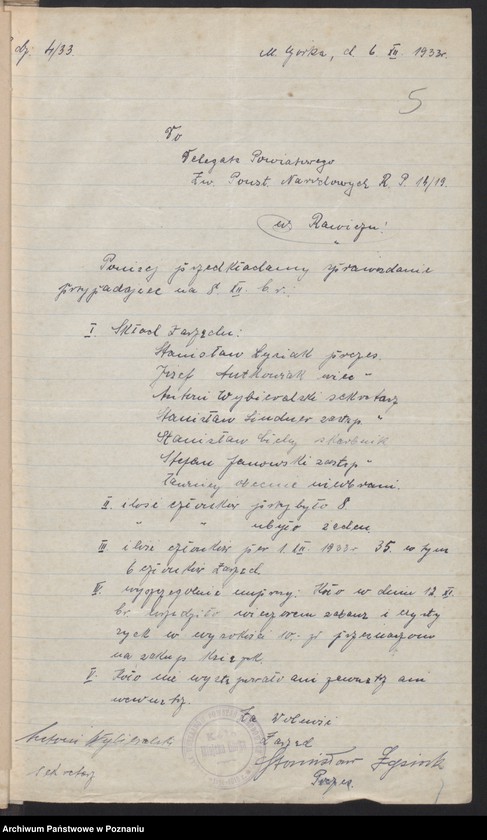 dz. 4/33
M. Górka, d. 6 XII. 1933r.
5
To
Delegata Powiatowego
Zw. Powst. Narodowych R. P. 18/19.
w Rawiczu!
Poniżej przedkładamy sprawozdanie
przypadające na 8. XII. b.r.:
I. Skład zarządu:
Stanisław Łysiak prezes.
Józef Antkowiak wice "
Antoni Wybieralski sekretarz
Stanisław Lindner zastęp "
Stanisław skarbnik
Stefan Janowski zastęp "
Ławnicy niewybrani.
II. ilość członków przybyło 8.
" " ubyło żaden.
III ilość członków per 1. XII 1933r 35. w tym
6 członków zarząd.
IV. Koło w dniu 12. XI.
br. urządziło wieczorem zabawę i czysty
zysk w wysokości 10.- zł przeznaczono
na zakup książek.
V. Koło nie występowało ani zewnątrz ani
wewnątrz.
Za
Zarząd
Antoni Wybieralski
Stanisław Łysiak
sekretarz
Prezes.
Archiwum Państwowe w Poznaniu